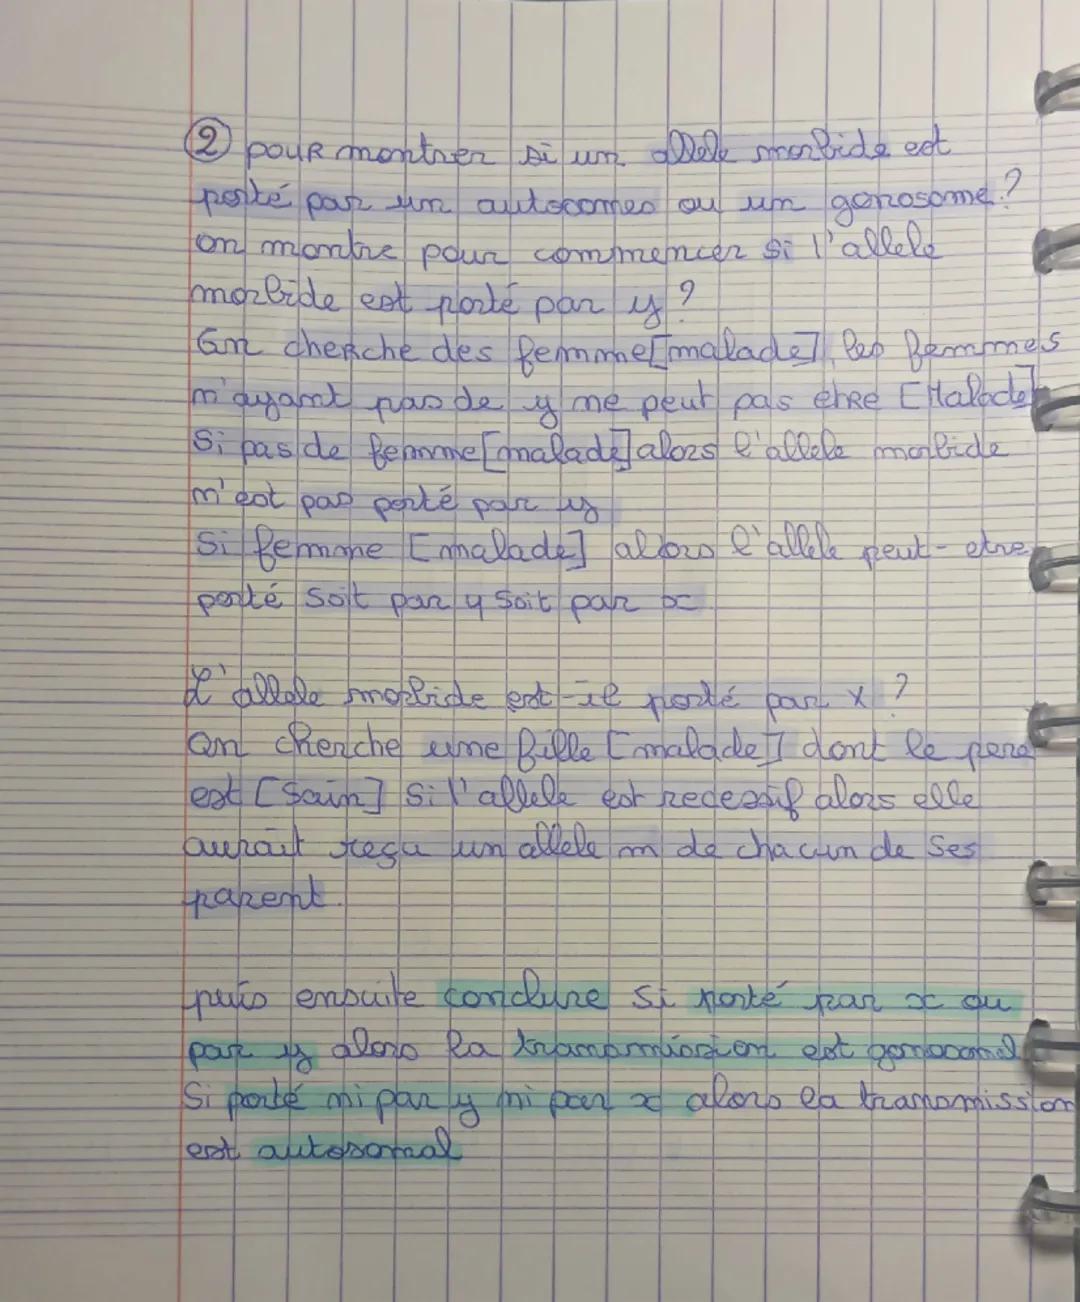 ② pour montrer si un allele morbide est
porté par un autosomes ou un gonosome ?
on montre pour commencer si l'allele
morbide est porté par y ?
On cherche des femme [malade] les femmes
n'ayant pas de y ne peut pas etre [Malade]
Si pas de femme [malade] alors l'allele morbide
n'est pas porté par y
Si femme [malade] alors l'allele peut-etre
porté soit par y soit par x
L'allele morbide est-il porté par x ?
On cherche une fille [malade] dont le pere
est [Sain] Si l'allele est recessif alors elle
aurait reçu un allele m de chacun de ses
parent.
puis ensuite conclure si porté par x ou
par y alors la transmission est gonosomal
Si porté ni par y ni par x alors la transmission
est autosomal